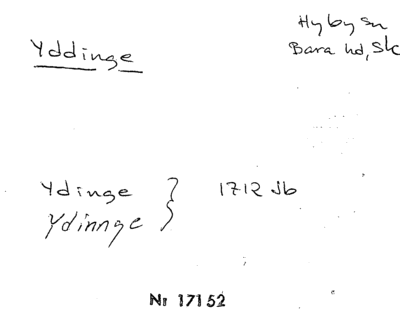 Yddinge
Hyby sn
Bara hd, Sk
Ydinge } 1712 Jb
Ydinnge
Nr 17152